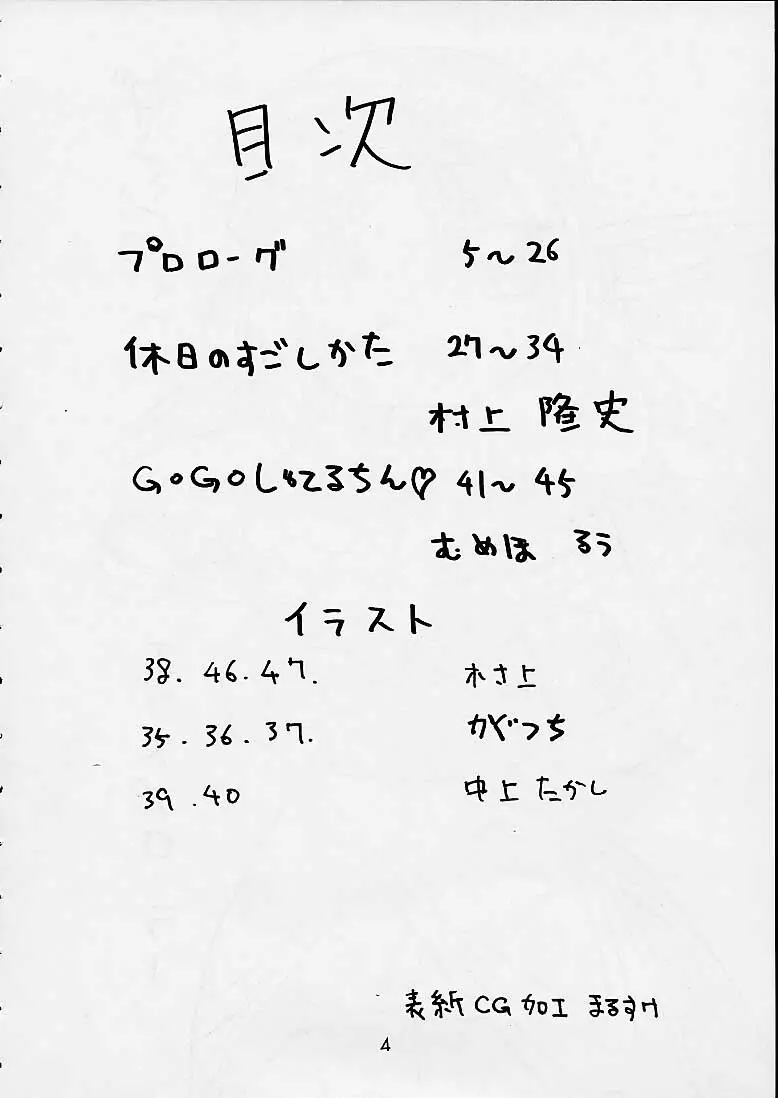 目次
プロローグ 5〜26
休日のすごしかた 27〜34
村上 隆史
GoGoしめてるちん♡ 41〜45
むめほ るう
イラスト
38. 46. 47. 木さ上
35. 36. 37. がぐっち
39. 40 中上 たかし
表紙CG加工 まるすけ
4